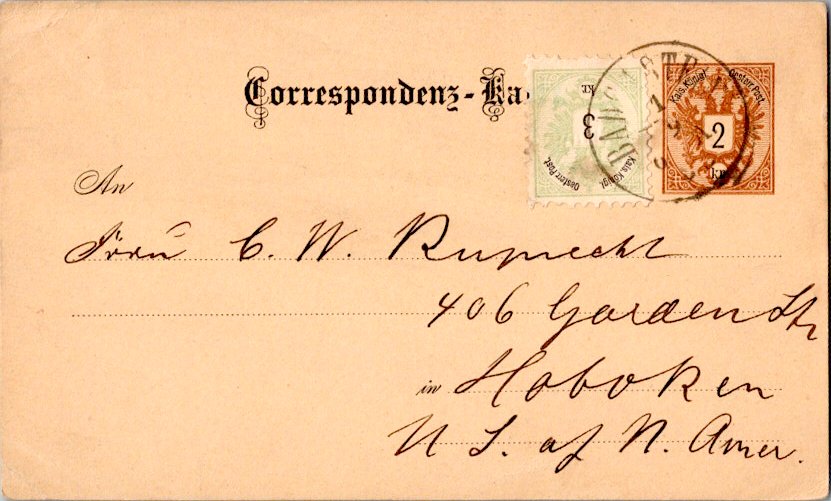 Correspondenz-Ka
Kais. Königl. Oesterr. Post
3
kr.
Kais. Königl. Oesterr. Post
2
kr.
An
Frau C. W. Ruprecht
406 Garden Str
in Hoboken
U S. of N. Amer.